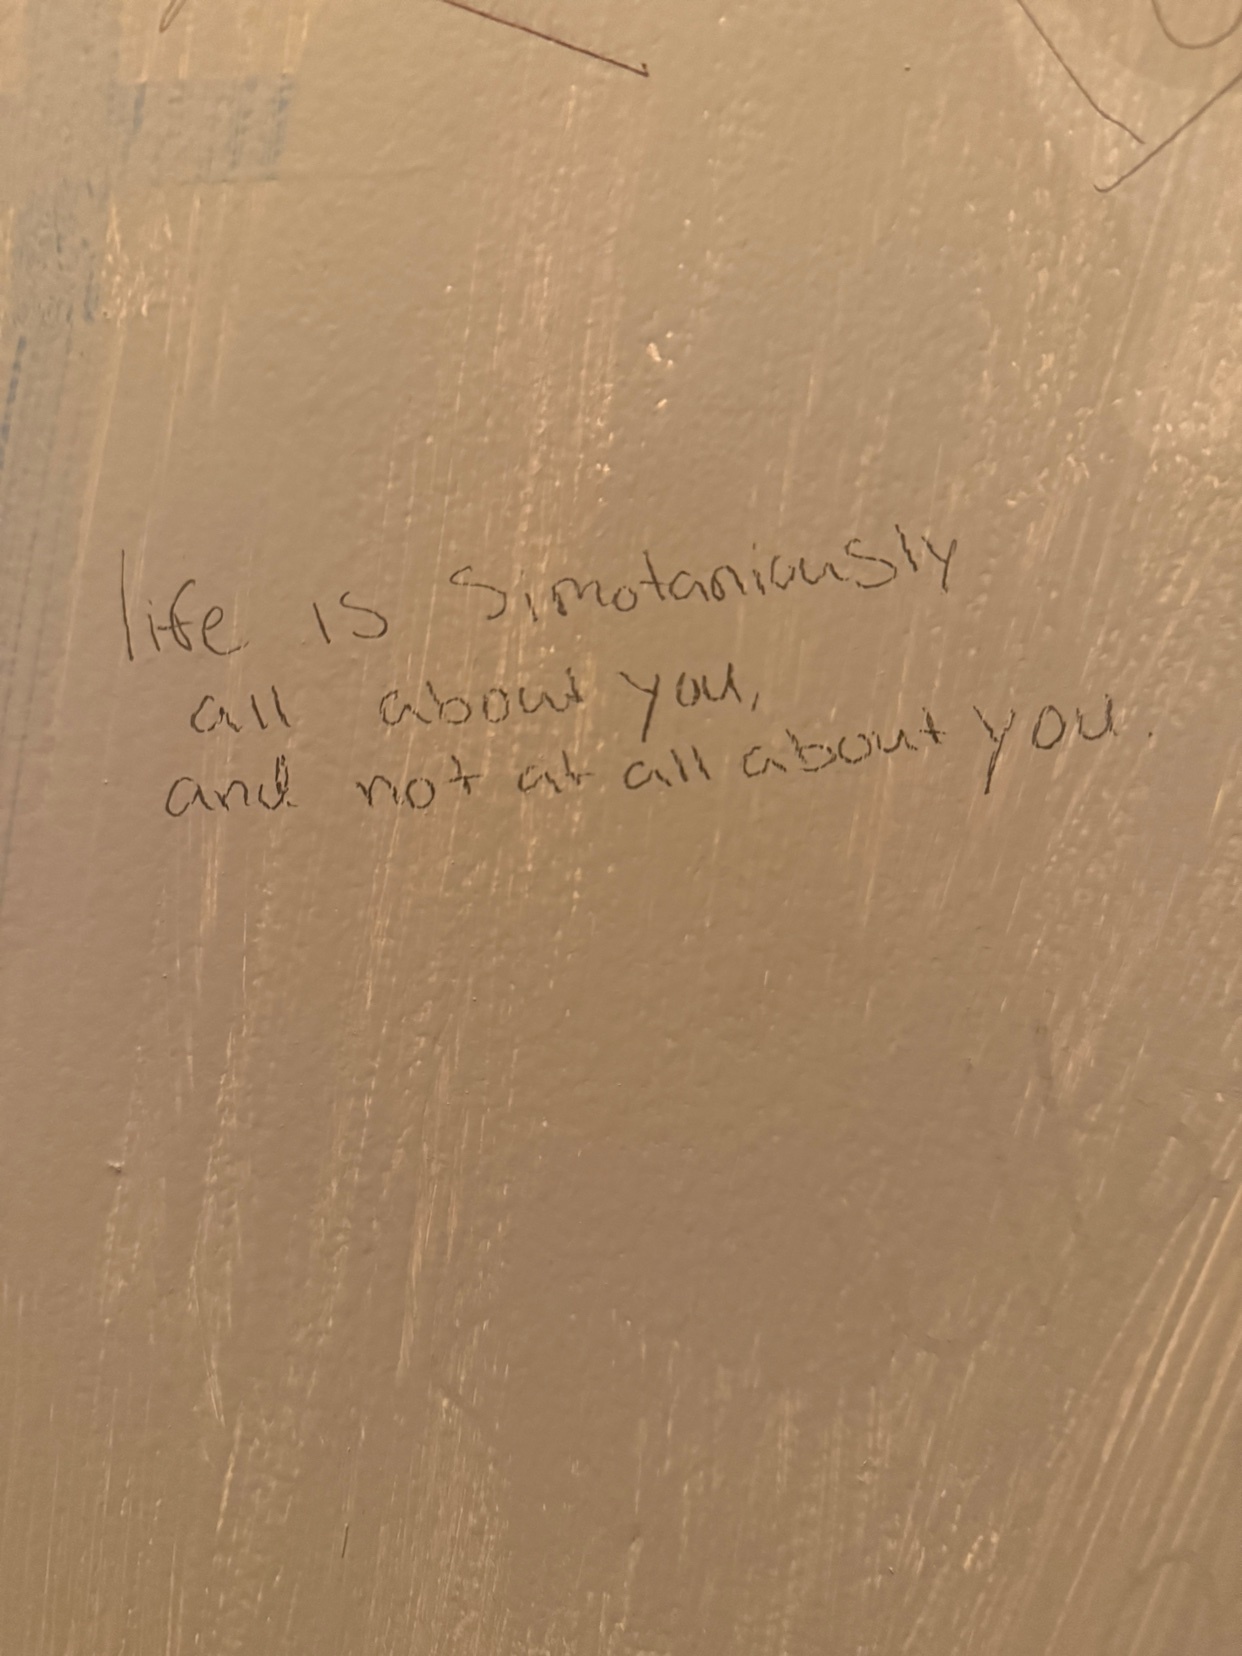 life is simotaniously
all about you,
and not at all about you.